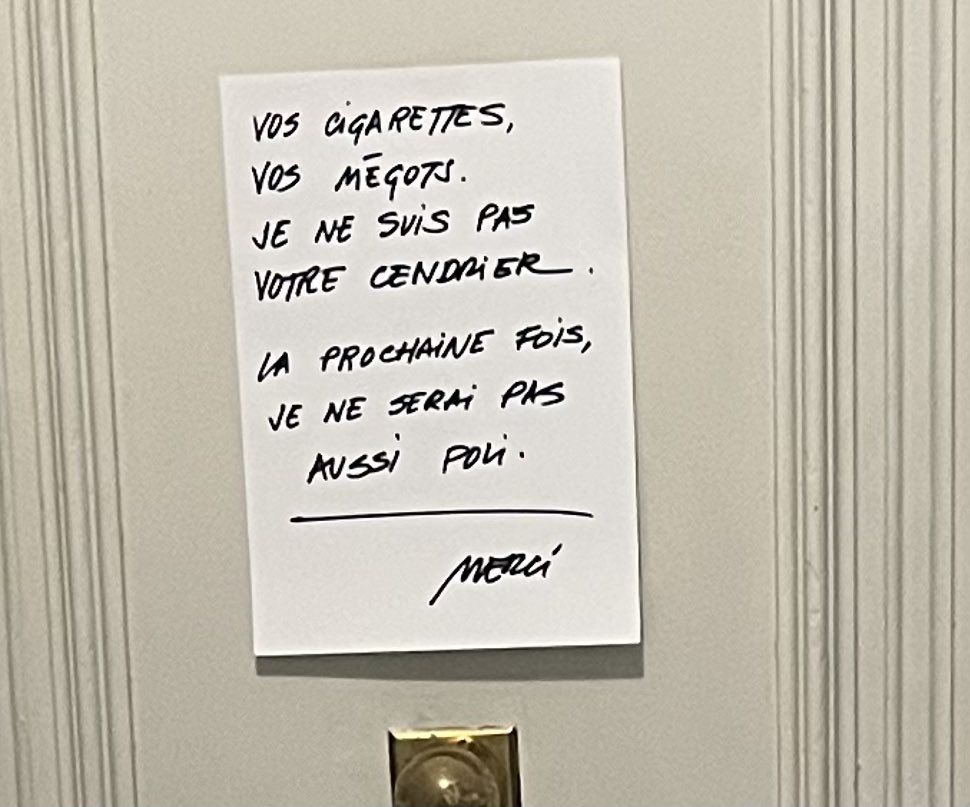 VOS CIGARETTES,
VOS MÉGOTS.
JE NE SUIS PAS
VOTRE CENDRIER.
LA PROCHAINE FOIS,
JE NE SERAI PAS
AUSSI POLI.
MERCI